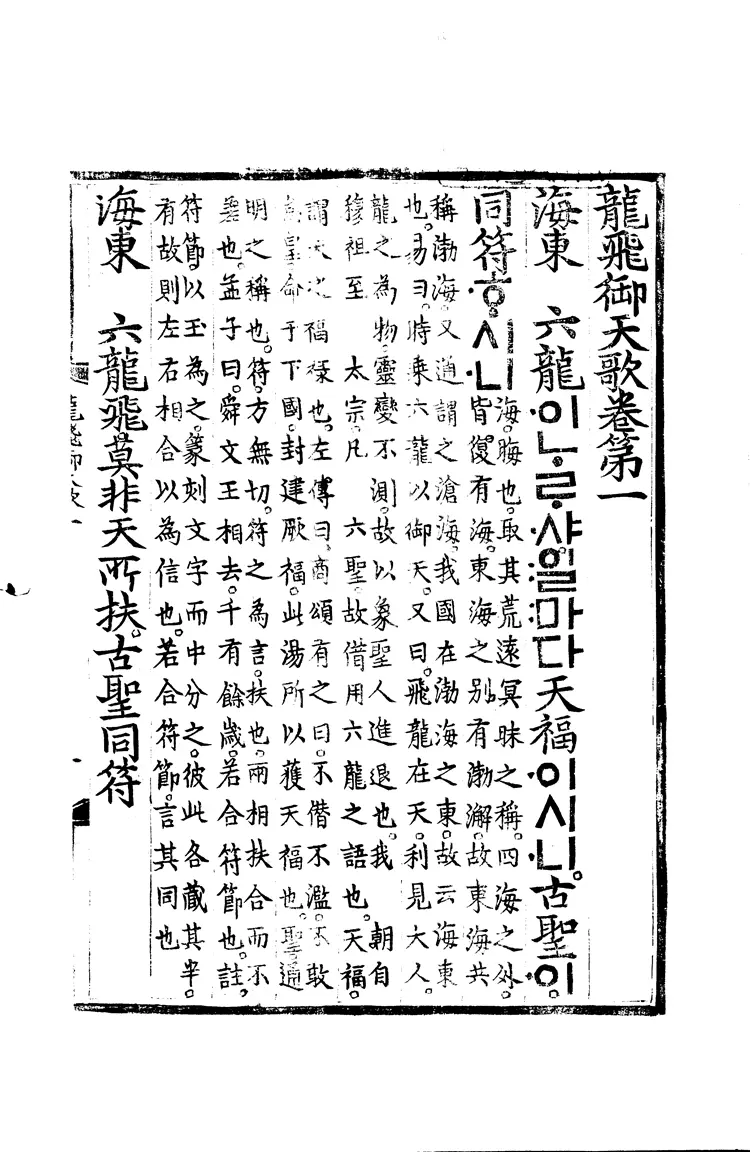 龍飛御天歌卷第一
海東 六龍이〮ᄂᆞᄅᆞ〮샤〮일〯마다〮天福이〮시〮니〮。古聖이〮
同符ᄒᆞ〮시〮니〮
海。晦也。取其荒遠冥昧之稱。四海之外。
皆復有海。東海之別有渤澥。故東海共
稱渤海。又通謂之滄海。我國在渤海之東。故云海東
也。易曰。時乘六龍以御天。又曰。飛龍在天。利見大人。
龍之為物。靈變不測。故以象聖人進退也。我 朝自
穆祖至 太宗。凡 六聖。故借用六龍之語也。天福。
謂天之福祿也。左傳曰。商頌有之曰。不僭不濫。不敢
怠皇。命于下國。封建厥福。此湯所以獲天福也。聖。通
明之稱也。符。方無切。符之為言。扶也。兩相扶合而不
差也。孟子曰。舜文王相去。千有餘歲。若合符節也。註。
符節。以玉為之。篆刻文字而中分之。彼此各藏其半。
有故則左右相合以為信也。若合符節。言其同也
海東 六龍飛莫非天所扶。古聖同符
龍飛御 一